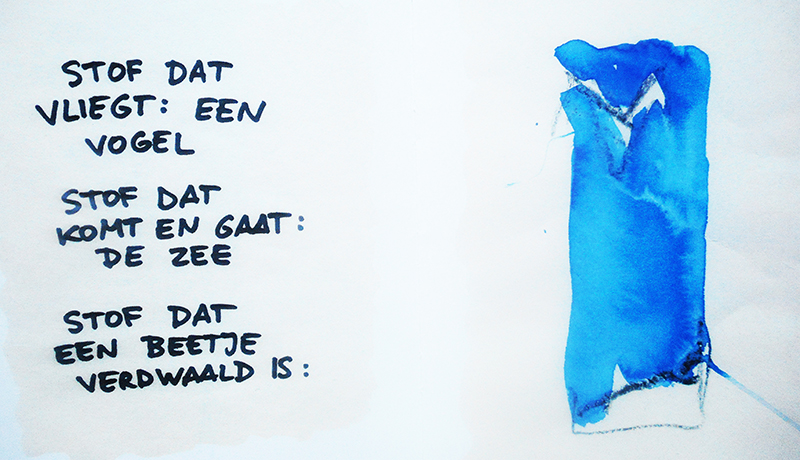 STOF DAT
VLIEGT: EEN
VOGEL
STOF DAT
KOMT EN GAAT:
DE ZEE
STOF DAT
EEN BEETJE
VERDWAALD IS: